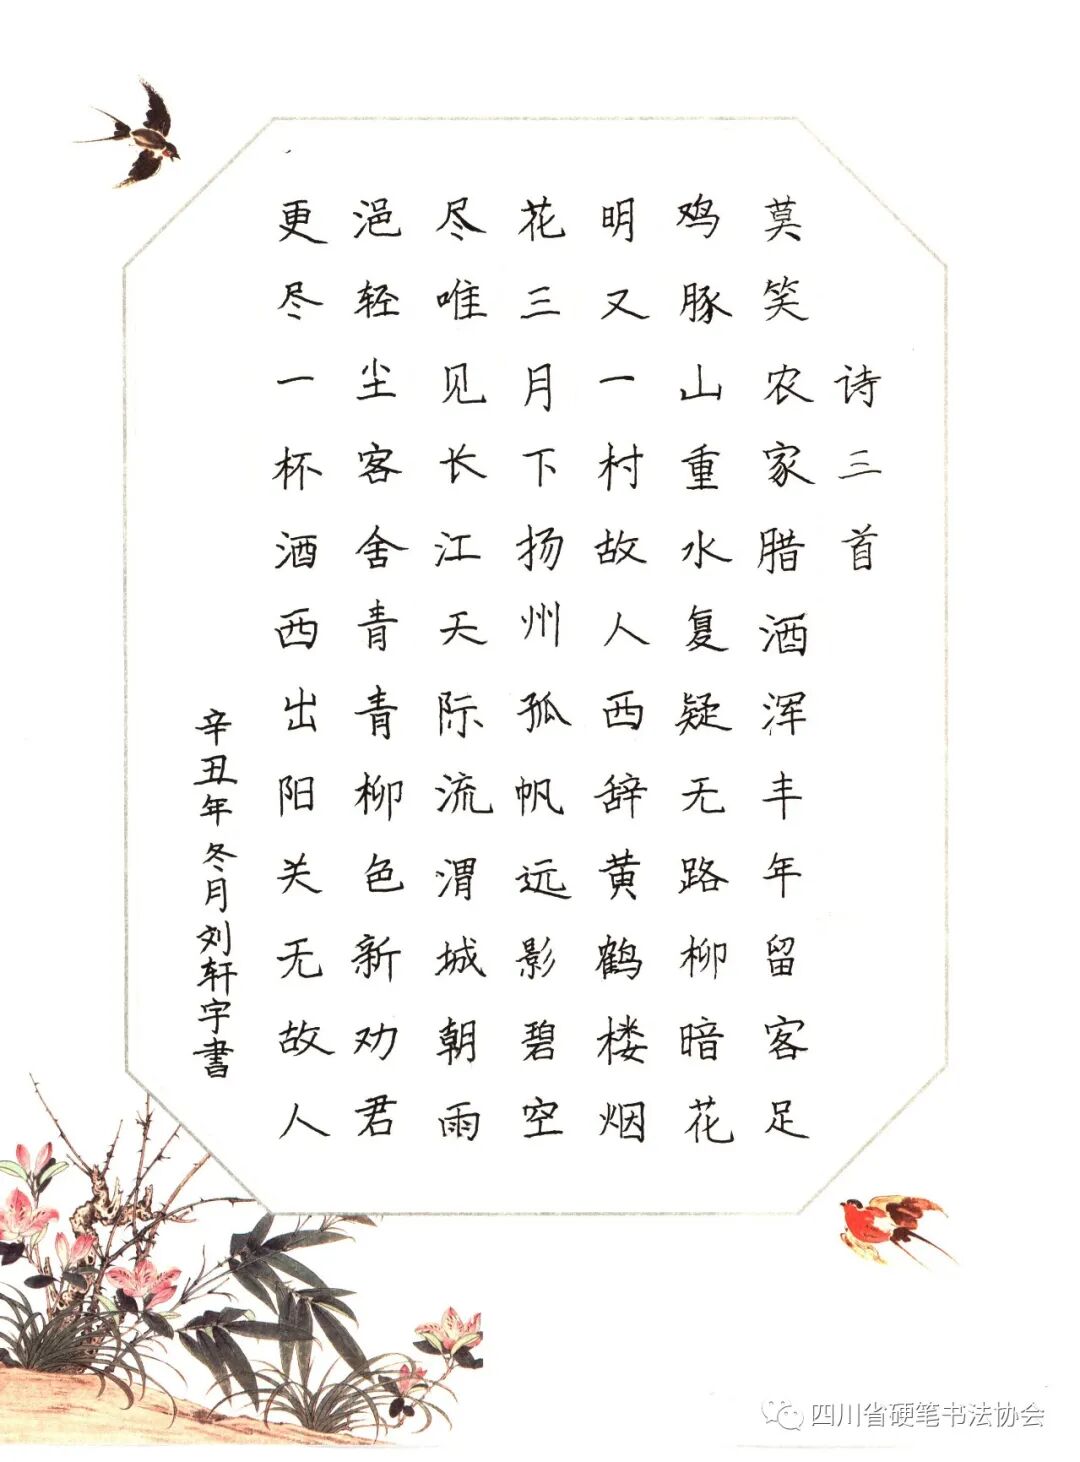 诗三首
莫笑农家腊酒浑丰年留客足
鸡豚山重水复疑无路柳暗花
明又一村故人西辞黄鹤楼烟
花三月下扬州孤帆远影碧空
尽唯见长江天际流渭城朝雨
浥轻尘客舍青青柳色新劝君
更尽一杯酒西出阳关无故人
辛丑年冬月刘轩宇書
四川省硬笔书法协会